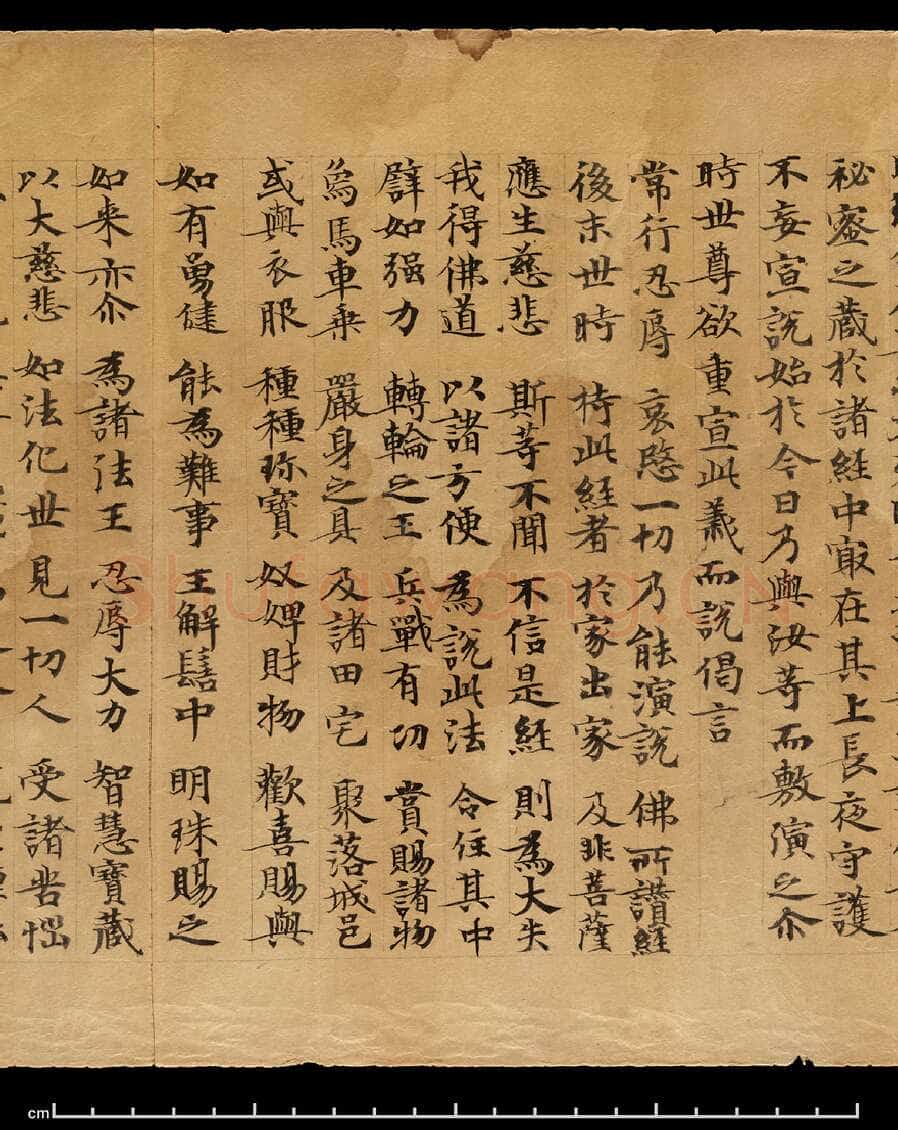 秘密之藏於諸經中㝡在其上長夜守護
不妄宣說始於今日乃與汝等而敷演之尒
時世尊欲重宣此義而說偈言
常行忍辱 哀愍一切 乃能演說 佛所讚經
後末世時 持此經者 於家出家 及非菩薩
應生慈悲 斯等不聞 不信是經 則為大失
我得佛道 以諸方便 為說此法 令住其中
譬如强力 轉輪之王 兵戰有功 賞賜諸物
象馬車乘 嚴身之具 及諸田宅 聚落城邑
或與衣服 種種珎寶 奴婢財物 歡喜賜與
如有勇健 能為難事 王解髻中 明珠賜之
如来亦尒 為諸法王 忍辱大力 智慧寶藏
以大慈悲 如法化世 見一切人 受諸苦惱
Shufawang.CN
cm